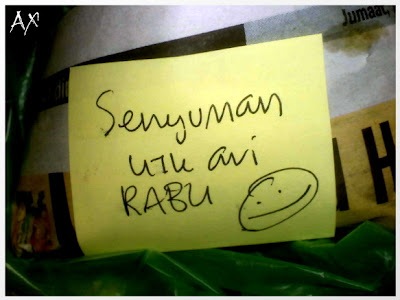 AX
Jumaat,
Senyuman
utk ari
RABU
H